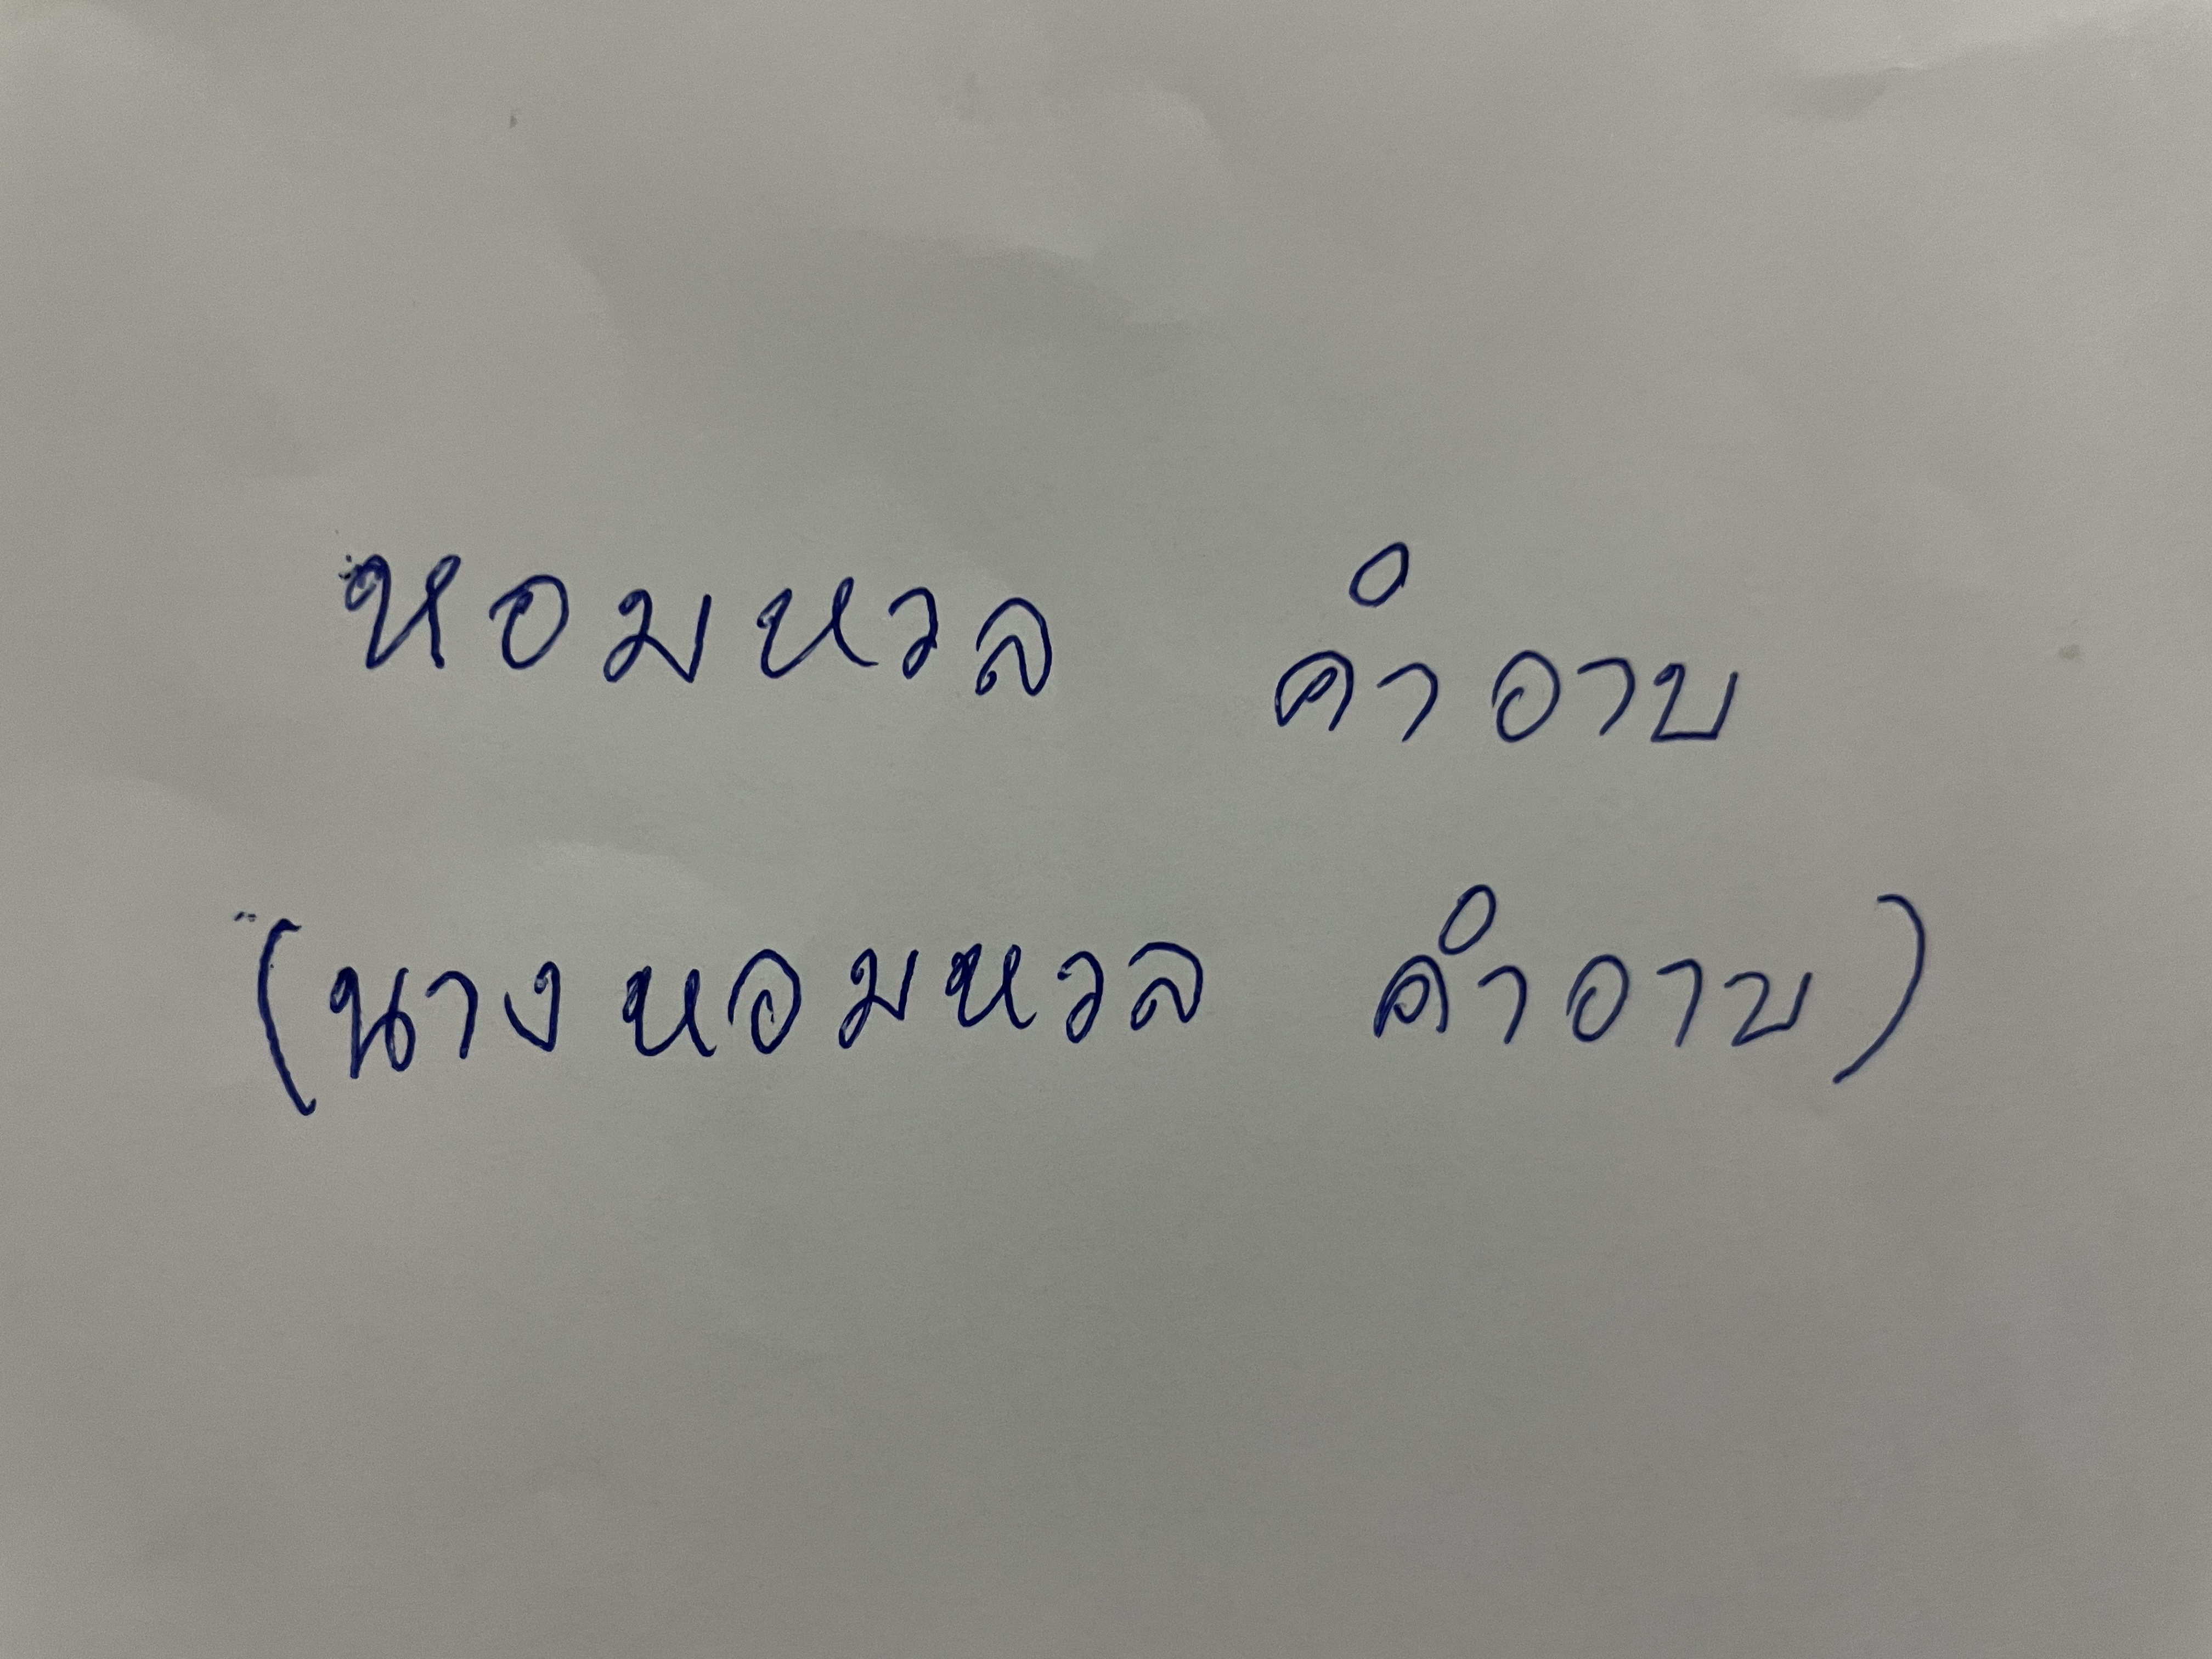 หอมหวล คำอาบ
(นางหอมหวล คำอาบ)